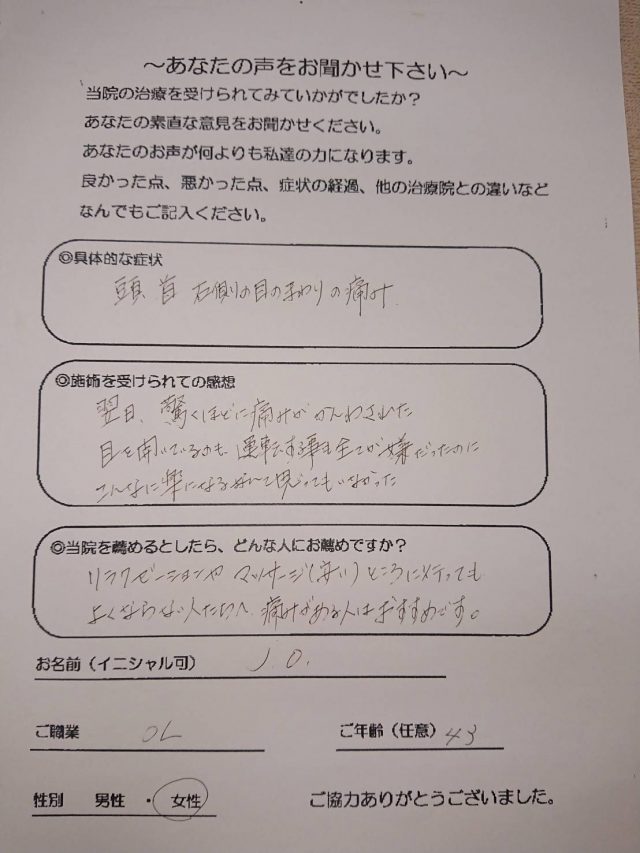 ～あなたの声をお聞かせ下さい～
当院の治療を受けられてみていかがでしたか？
あなたの素直な意見をお聞かせください。
あなたのお声が何よりも私達の力になります。
良かった点、悪かった点、症状の経過、他の治療院との違いなど
なんでもご記入ください。
◎具体的な症状
頭 首 右側の目のまわりの痛み
◎施術を受けられての感想
翌日、驚くほどに痛みがかんわされた
目を開いているのも、運転する事も全てが嫌だったのに
こんなに楽になるなんて思ってもいなかった
◎当院を薦めるとしたら、どんな人にお薦めですか？
リラクゼーションや マッサージ(安い)ところに行っても
よくならない人たちへ 痛みがある人はおすすめです。
お名前（イニシャル可） J.O.
ご職業 OL ご年齢（任意） 43
性別 男性 ・ 女性 ご協力ありがとうございました。